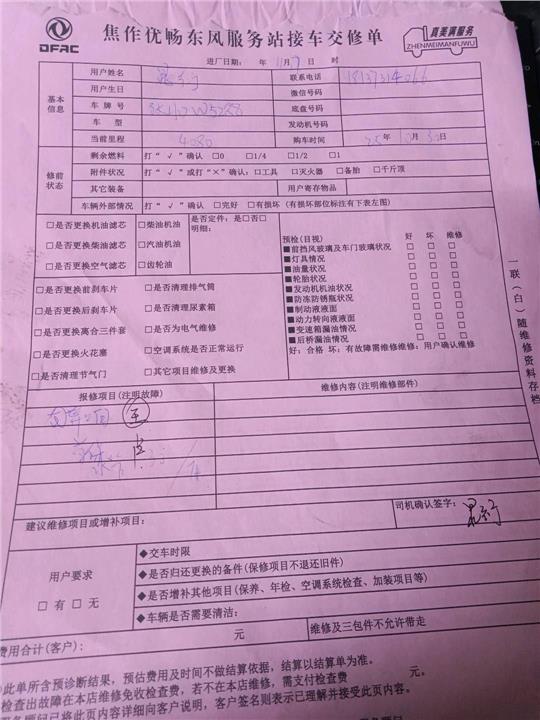 DFAC
焦作优畅东风服务站接车交修单
真美满服务
ZHENMEIMANFUWU
进厂日期: 年 11月 9日 时
基本信息
用户姓名
联系电话
用户生日
微信号码
车牌号
底盘号码
车型
发动机号码
当前里程 4080 购车时间 25年10月30日
修前状态
剩余燃料 打“√”确认 □0 □1/4 □1/2 □1
附件状况 打“√”或打“×”确认:□工具 □灭火器 □备胎 □千斤顶
其它装备 用户寄存物品
车辆外部情况 打“√”确认 □完好 □有损坏(有损坏部位标注有下表左图)
□是否更换机油滤芯 □柴油机油 是否定件:是□否□
明细:
□是否更换柴油滤芯 □汽油机油
□是否更换空气滤芯 □齿轮油
□是否更换前刹车片 □是否清理排气筒
□是否更换后刹车片 □是否清理尿素箱
□是否更换离合三件套 □是否为电气维修
□是否更换火花塞 □空调系统是否正常运行
□是否清理节气门 □其它项目维修及更换
预检(目视) 好 坏 维修
■前挡风玻璃及车门玻璃状况 □ □ □
■灯具情况 □ □ □
■油量状况 □ □ □
■轮胎状况 □ □ □
■发动机机油状况 □ □ □
■防冻防锈瓶状况 □ □ □
■制动液液面 □ □ □
■动力转向液液面 □ □ □
■变速箱漏油情况 □ □ □
■后桥漏油情况 □ □ □
好:合格 坏:有故障需维修维修:用户确认维修
一联(白)随维修资料存档
报修项目(注明故障) 维修内容(注明维修部件)
建议维修项目或增补项目:
司机确认签字:
用户要求
□ 有 □ 无
◆交车时限
◆是否归还更换的备件(保修项目不退还旧件)
◆是否增补其他项目(保养、年检、空调系统检查、加装项目等)
◆车辆是否需要清洁:
费用合计(客户): 元 维修及三包件不允许带走
此单所含预诊断结果,预估费用及时间不做结算依据,结算以结算单为准。
检查出故障在本店维修免收检查费,若不在本店维修,需支付检查费 元。
已将此页内容详细向客户说明,客户签名则表示已理解并接受此页内容。